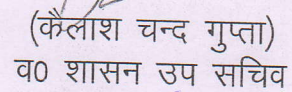 (कैलाश चन्द गुप्ता)
व0 शासन उप सचिव